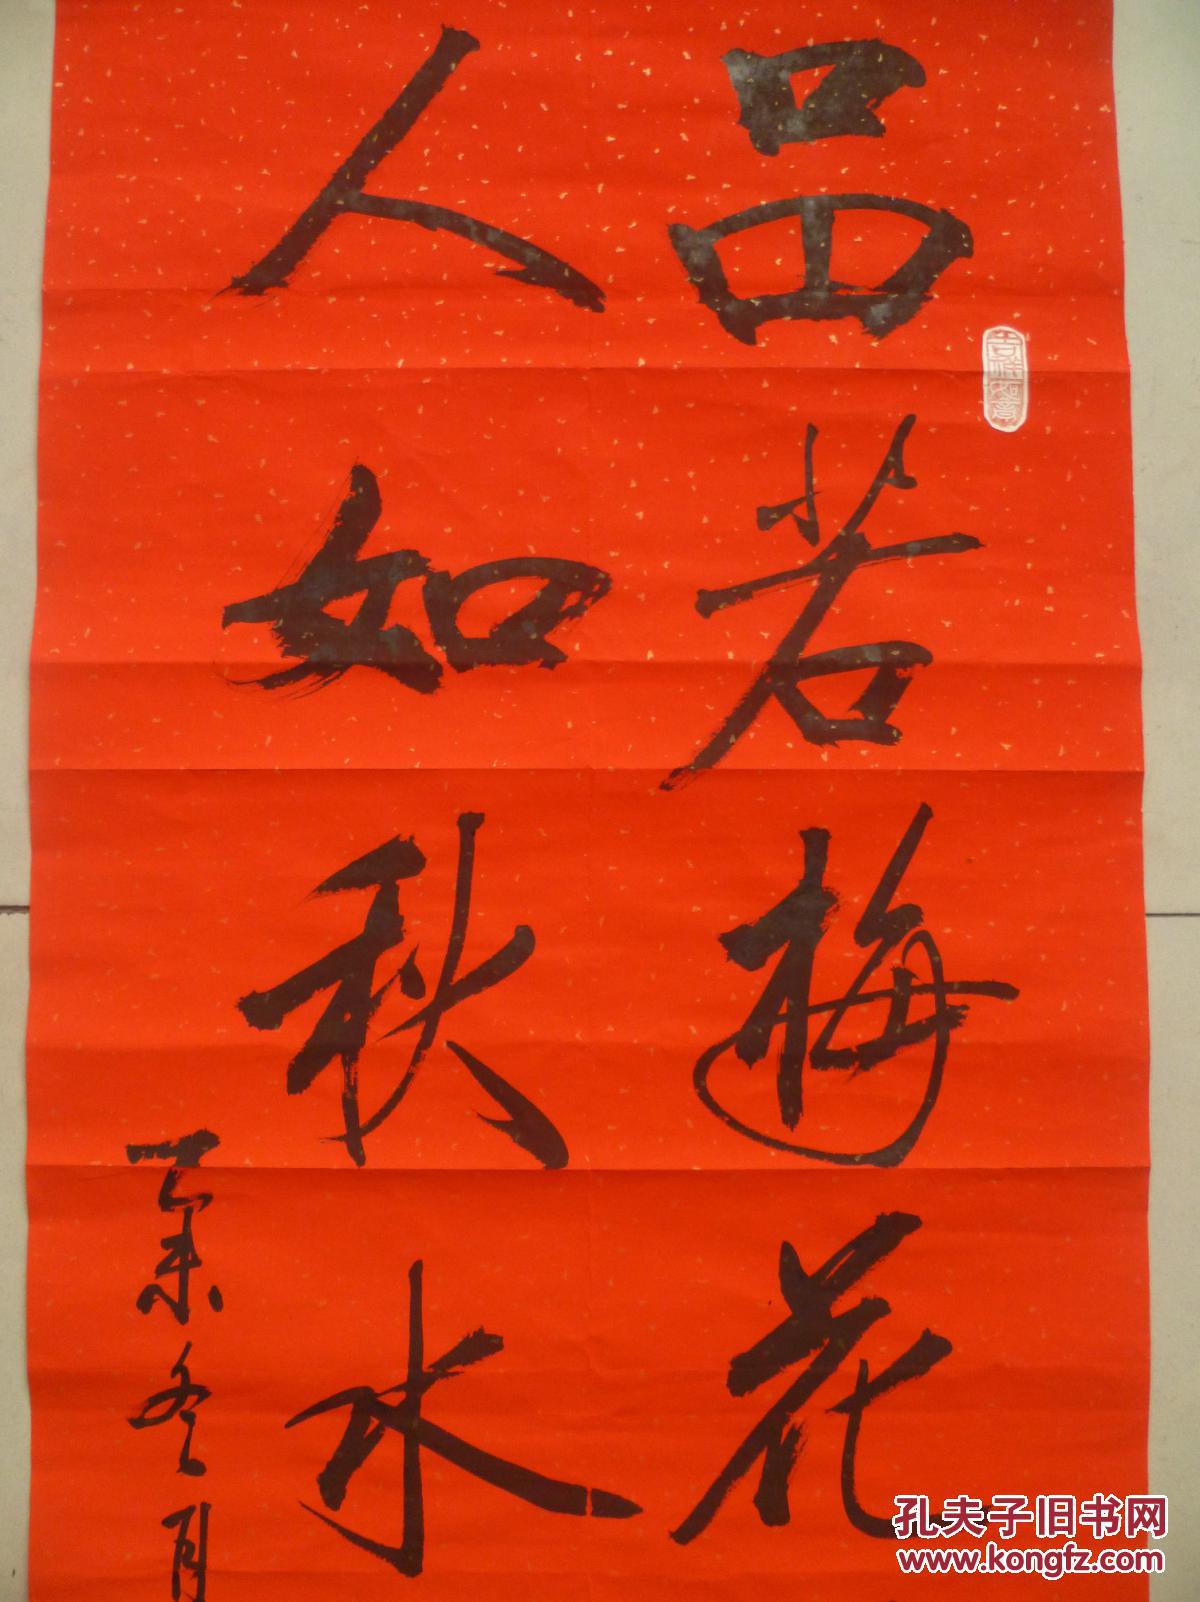 品若梅花
人如秋水
丁未冬月
吉祥如意
孔夫子旧书网
www.kongfz.com